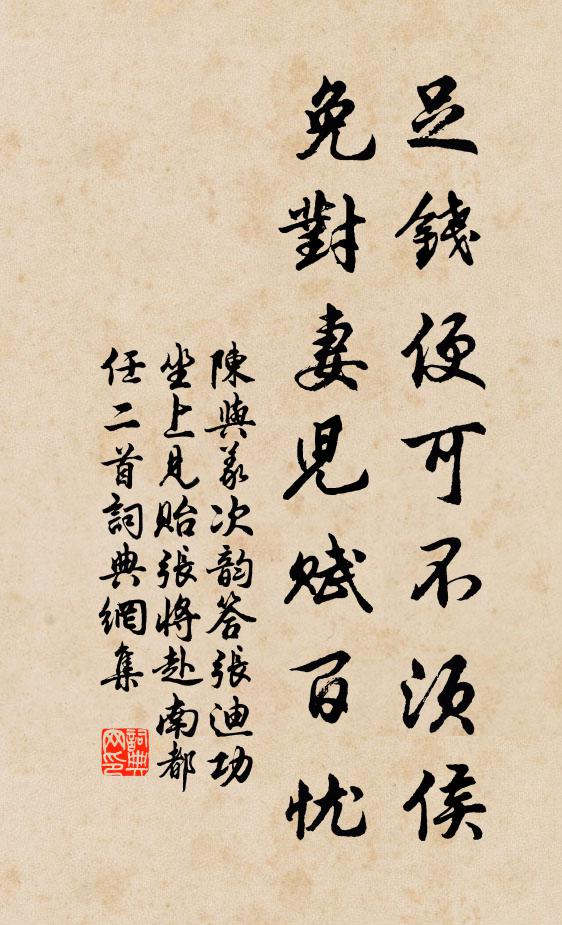 足錢便可不須侯
免對妻兒賦百忧
陳與義次韵答張迪功
坐上見貽張將赴南都
任二首詞典網集
詞典
网印